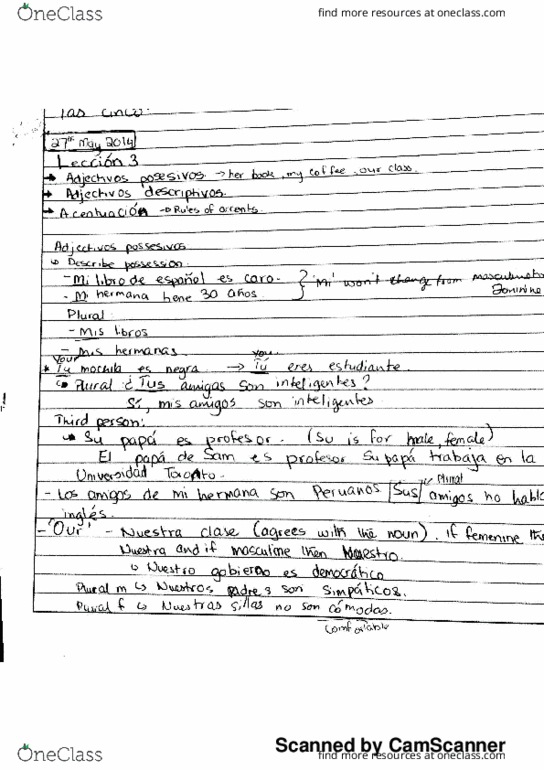 OneClass
find more resources at oneclass.com
las cinco.
27th May 2014
Lección 3
→ Adjectivos posesivos → her book, my coffee, our class.
→ Adjectivos descriptivos.
→ Acentuación → Rules of accents.
Adjectivos possesivos
↳ Describe possession.
- Mi libro de español es caro.
- Mi hermana tiene 30 años.
} 'Mi' won't change from masculine to
feminine
Plural:
- Mis libros
- Mis hermanas
your you
* Tu mochila es negra → Tú eres estudiante.
↳ Plural ¿ Tus amigas son inteligentes?
Sí, mis amigos son inteligentes
Third person:
↳ Su papá es profesor. (Su is for male, female)
El papá de Sam es profesor Su papá trabaja en la
Universidad Toronto.
Plural
- Los amigos de mi hermana son Peruanos [Sus] amigos no habla
inglés.
- 'Our' - Nuestra clase (agrees with the noun). if femenine the
Nuestra and if masculine then Nuestro.
↳ Nuestro gobierno es democrático
Plural m ↳ Nuestros padres son simpáticos.
Plural f ↳ Nuestras sillas no son cómodas.
Comfortable
Scanned by CamScanner
OneClass
find more resources at oneclass.com